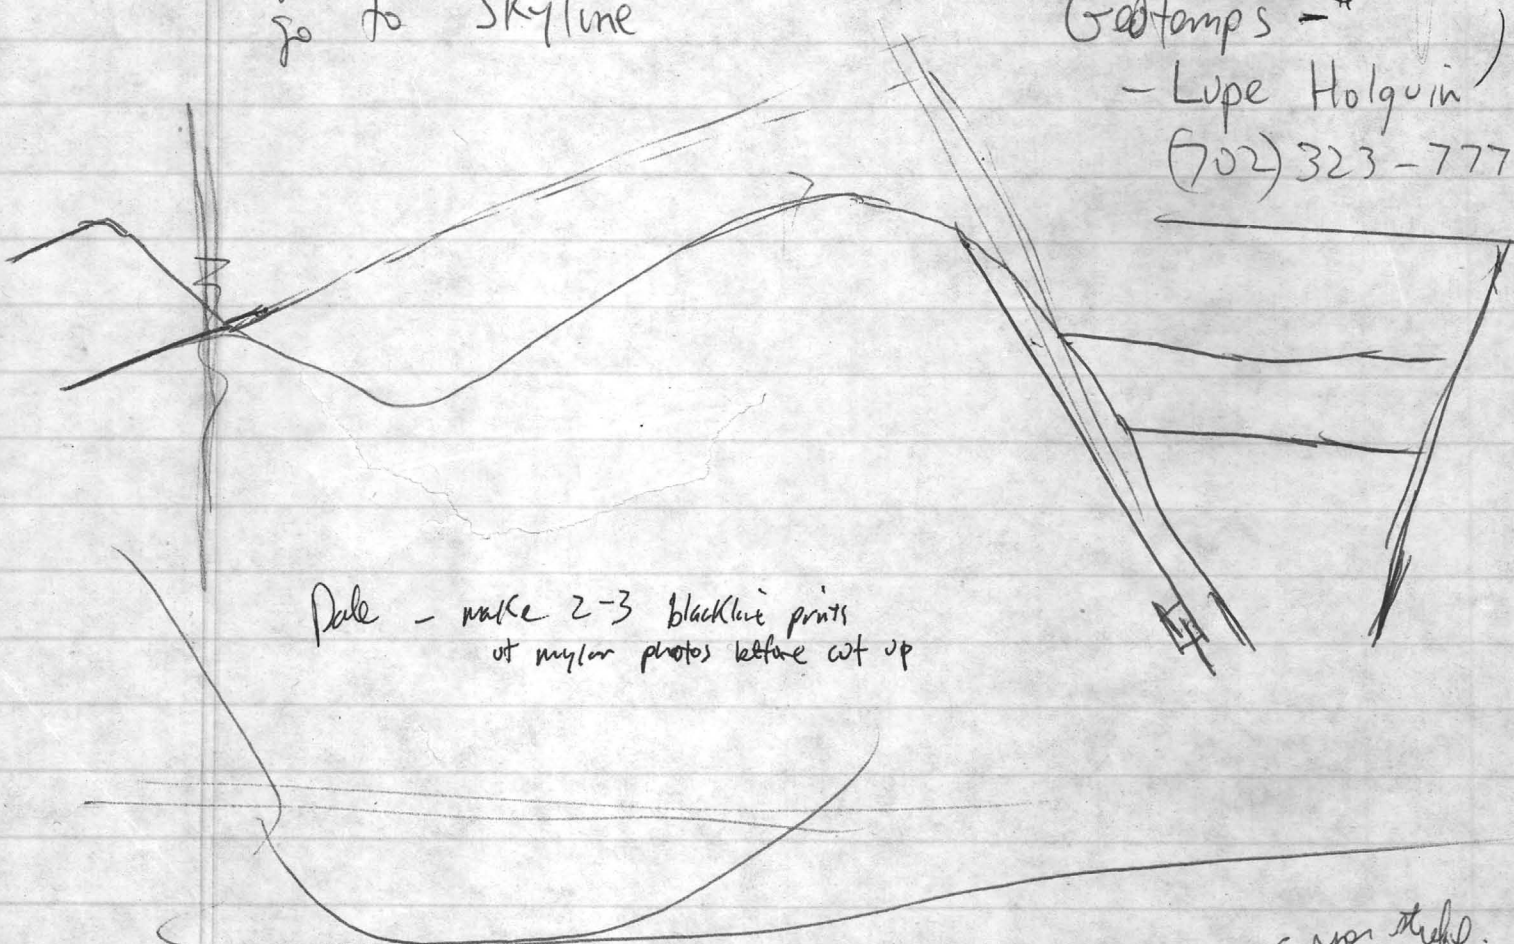 go to Skyline
Geotemps -"
- Lupe Holguin )
(702) 323-777
Dale - make 2-3 blackline prints
of mylar photos before cut up